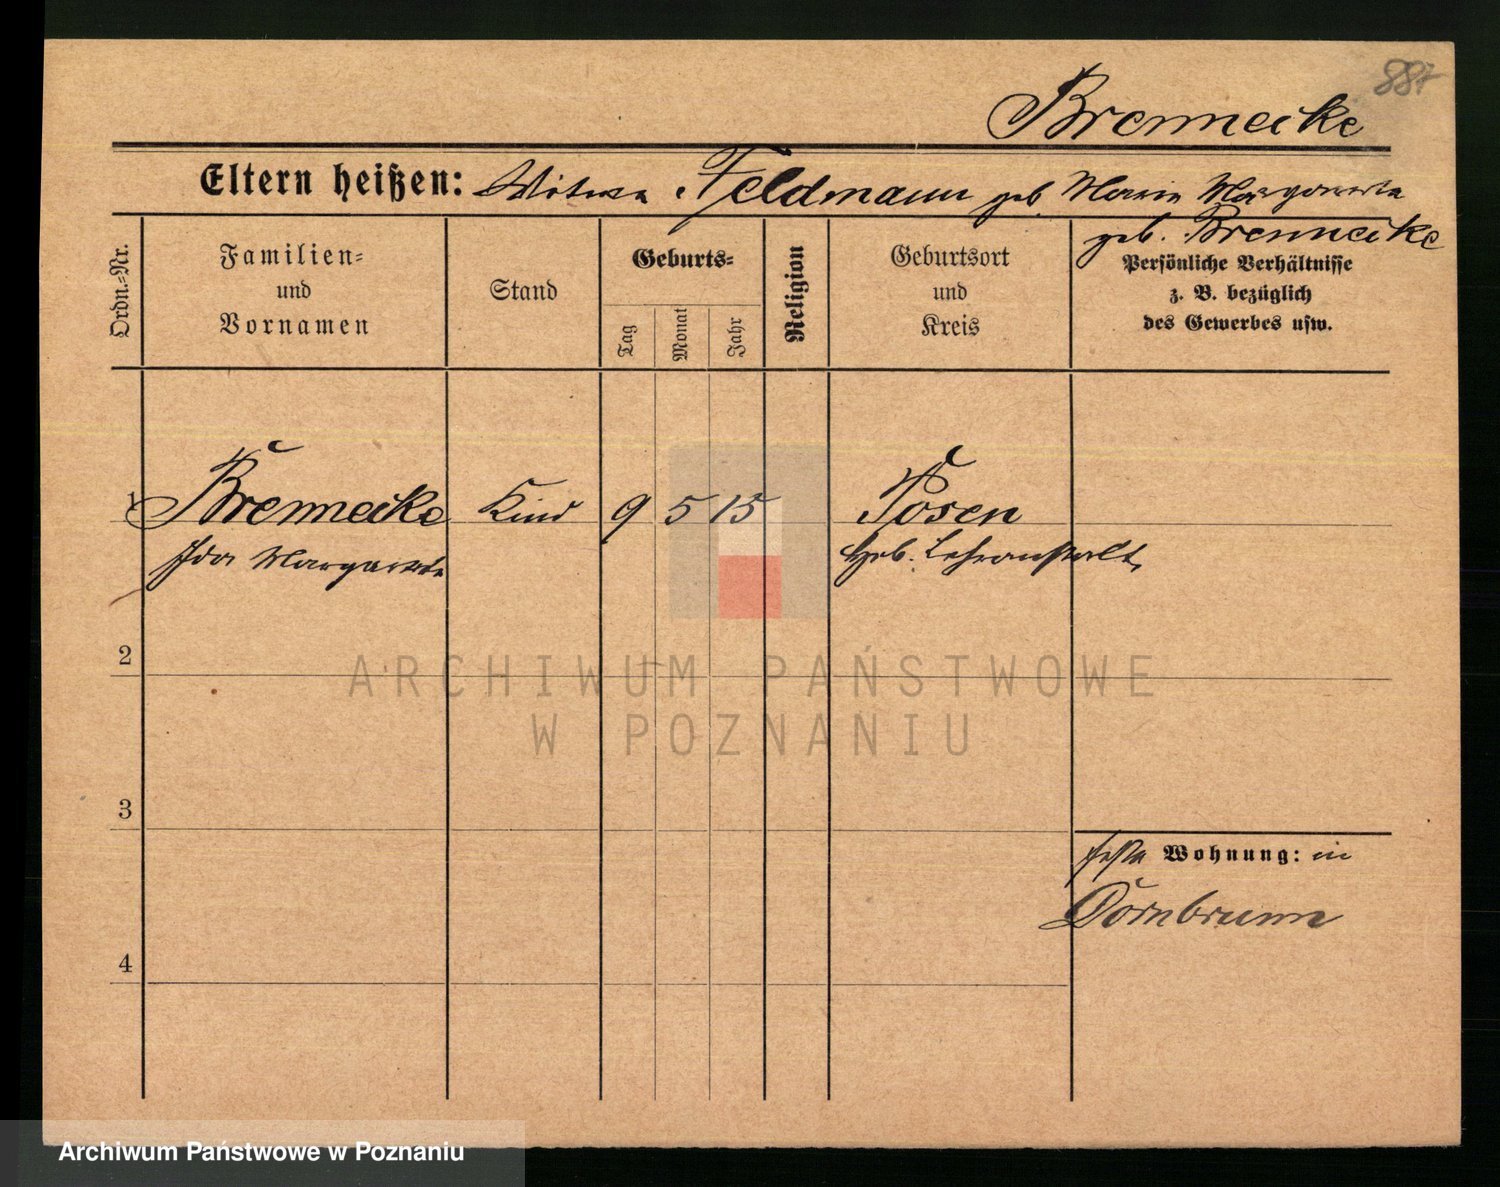 887
Brennecke
Eltern heißen: Witwe Feldmann geb Marie Margarete
geb. Brennecke
Ordn.-Nr.
Familien-
und
Vornamen
Stand
Geburts-
Tag
Monat
Jahr
Religion
Geburtsort
und
Kreis
Persönliche Verhältnisse
z. B. bezüglich
des Gewerbes usw.
1 Brennecke Kind 9 5 15 Posen
Ida Margarete Heb. Lehranstalt
2
ARCHIWUM PAŃSTWOWE
W POZNANIU
3
feste Wohnung: in
Dornbrunn
4
Archiwum Państwowe w Poznaniu